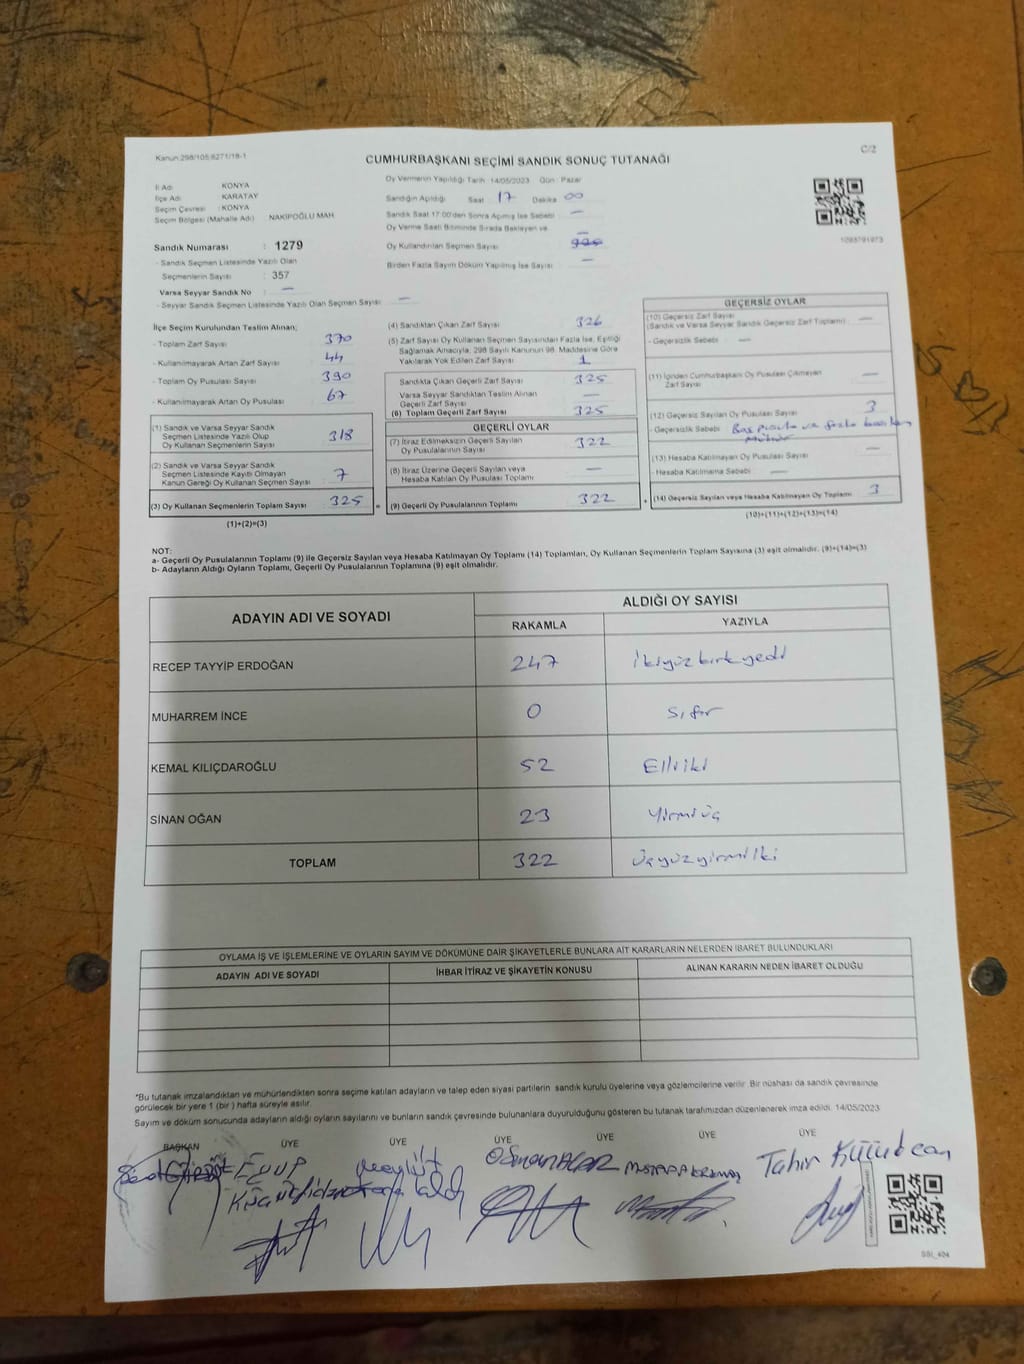 Kanun:298/105;6271/18-1
C/2
CUMHURBAŞKANI SEÇİMİ SANDIK SONUÇ TUTANAĞI
İl Adı : KONYA
İlçe Adı : KARATAY
Seçim Çevresi : KONYA
Seçim Bölgesi (Mahalle Adı) NAKIPOĞLU MAH
Sandık Numarası : 1279
- Sandık Seçmen Listesinde Yazılı Olan
Seçmenlerin Sayısı : 357
Varsa Seyyar Sandık No : —
- Seyyar Sandık Seçmen Listesinde Yazılı Olan Seçmen Sayısı : —
Oy Vermenin Yapıldığı Tarih : 14/05/2023 Gün : Pazar
Sandığın Açıldığı Saat 17 Dakika 00
Sandık Saat 17:00'den Sonra Açılmış İse Sebebi —
Oy Verme Saati Bitiminde Sırada Bekleyen ve
Oy Kullandırılan Seçmen Sayısı
Birden Fazla Sayım Döküm Yapılmış İse Sayısı —
1093791973
İlçe Seçim Kurulundan Teslim Alınan;
- Toplam Zarf Sayısı 370
- Kullanılmayarak Artan Zarf Sayısı 44
- Toplam Oy Pusulası Sayısı 390
- Kullanılmayarak Artan Oy Pusulası 67
(1) Sandık ve Varsa Seyyar Sandık
Seçmen Listesinde Yazılı Olup
Oy Kullanan Seçmenlerin Sayısı 318
(2) Sandık ve Varsa Seyyar Sandık
Seçmen Listesinde Kayıtlı Olmayan
Kanun Gereği Oy Kullanan Seçmen Sayısı 7
(3) Oy Kullanan Seçmenlerin Toplam Sayısı 325
(1)+(2)=(3)
(4) Sandıktan Çıkan Zarf Sayısı 326
(5) Zarf Sayısı Oy Kullanan Seçmen Sayısından Fazla İse, Eşitliği
Sağlamak Amacıyla; 298 Sayılı Kanunun 98. Maddesine Göre
Yakılarak Yok Edilen Zarf Sayısı 1
Sandıkta Çıkan Geçerli Zarf Sayısı 325
Varsa Seyyar Sandıktan Teslim Alınan
Geçerli Zarf Sayısı —
(6) Toplam Geçerli Zarf Sayısı 325
GEÇERLİ OYLAR
(7) İtiraz Edilmeksizin Geçerli Sayılan
Oy Pusulalarının Sayısı 322
(8) İtiraz Üzerine Geçerli Sayılan veya
Hesaba Katılan Oy Pusulası Toplamı —
= (9) Geçerli Oy Pusulalarının Toplamı 322
GEÇERSİZ OYLAR
(10) Geçersiz Zarf Sayısı
(Sandık ve Varsa Seyyar Sandık Geçersiz Zarf Toplamı) —
- Geçersizlik Sebebi : —
(11) İçinden Cumhurbaşkanı Oy Pusulası Çıkmayan
Zarf Sayısı —
(12) Geçersiz Sayılan Oy Pusulası Sayısı 3
- Geçersizlik Sebebi : Boş pusula ve fazla basılan
Mühür
(13) Hesaba Katılmayan Oy Pusulası Sayısı —
- Hesaba Katılmama Sebebi : —
+ (14) Geçersiz Sayılan veya Hesaba Katılmayan Oy Toplamı 3
(10)+(11)+(12)+(13)=(14)
NOT:
a- Geçerli Oy Pusulalarının Toplamı (9) ile Geçersiz Sayılan veya Hesaba Katılmayan Oy Toplamı (14) Toplamları, Oy Kullanan Seçmenlerin Toplam Sayısına (3) eşit olmalıdır. (9)+(14)=(3)
b- Adayların Aldığı Oyların Toplamı, Geçerli Oy Pusulalarının Toplamına (9) eşit olmalıdır.
ADAYIN ADI VE SOYADI
ALDIĞI OY SAYISI
RAKAMLA YAZIYLA
RECEP TAYYİP ERDOĞAN 247 İkiyüzkırkyedi
MUHARREM İNCE 0 Sıfır
KEMAL KILIÇDAROĞLU 52 Elliiki
SİNAN OĞAN 23 Yirmiüç
TOPLAM 322 Üçyüzyirmiiki
OYLAMA İŞ VE İŞLEMLERİNE VE OYLARIN SAYIM VE DÖKÜMÜNE DAİR ŞİKAYETLERLE BUNLARA AİT KARARLARIN NELERDEN İBARET BULUNDUKLARI
ADAYIN ADI VE SOYADI
İHBAR İTİRAZ VE ŞİKAYETİN KONUSU
ALINAN KARARIN NEDEN İBARET OLDUĞU
*Bu tutanak imzalandıktan ve mühürlendikten sonra seçime katılan adayların ve talep eden siyasi partilerin sandık kurulu üyelerine veya gözlemcilerine verilir. Bir nüshası da sandık çevresinde
görülecek bir yere 1 (bir ) hafta süreyle asılır.
Sayım ve döküm sonucunda adayların aldığı oyların sayılarını ve bunların sandık çevresinde bulunanlara duyurulduğunu gösteren bu tutanak tarafımızdan düzenlenerek imza edildi. 14/05/2023
BAŞKAN ÜYE ÜYE ÜYE ÜYE ÜYE ÜYE
EYÜP
OSMAN ACAR
Tahir Küçükcan
SSI_404